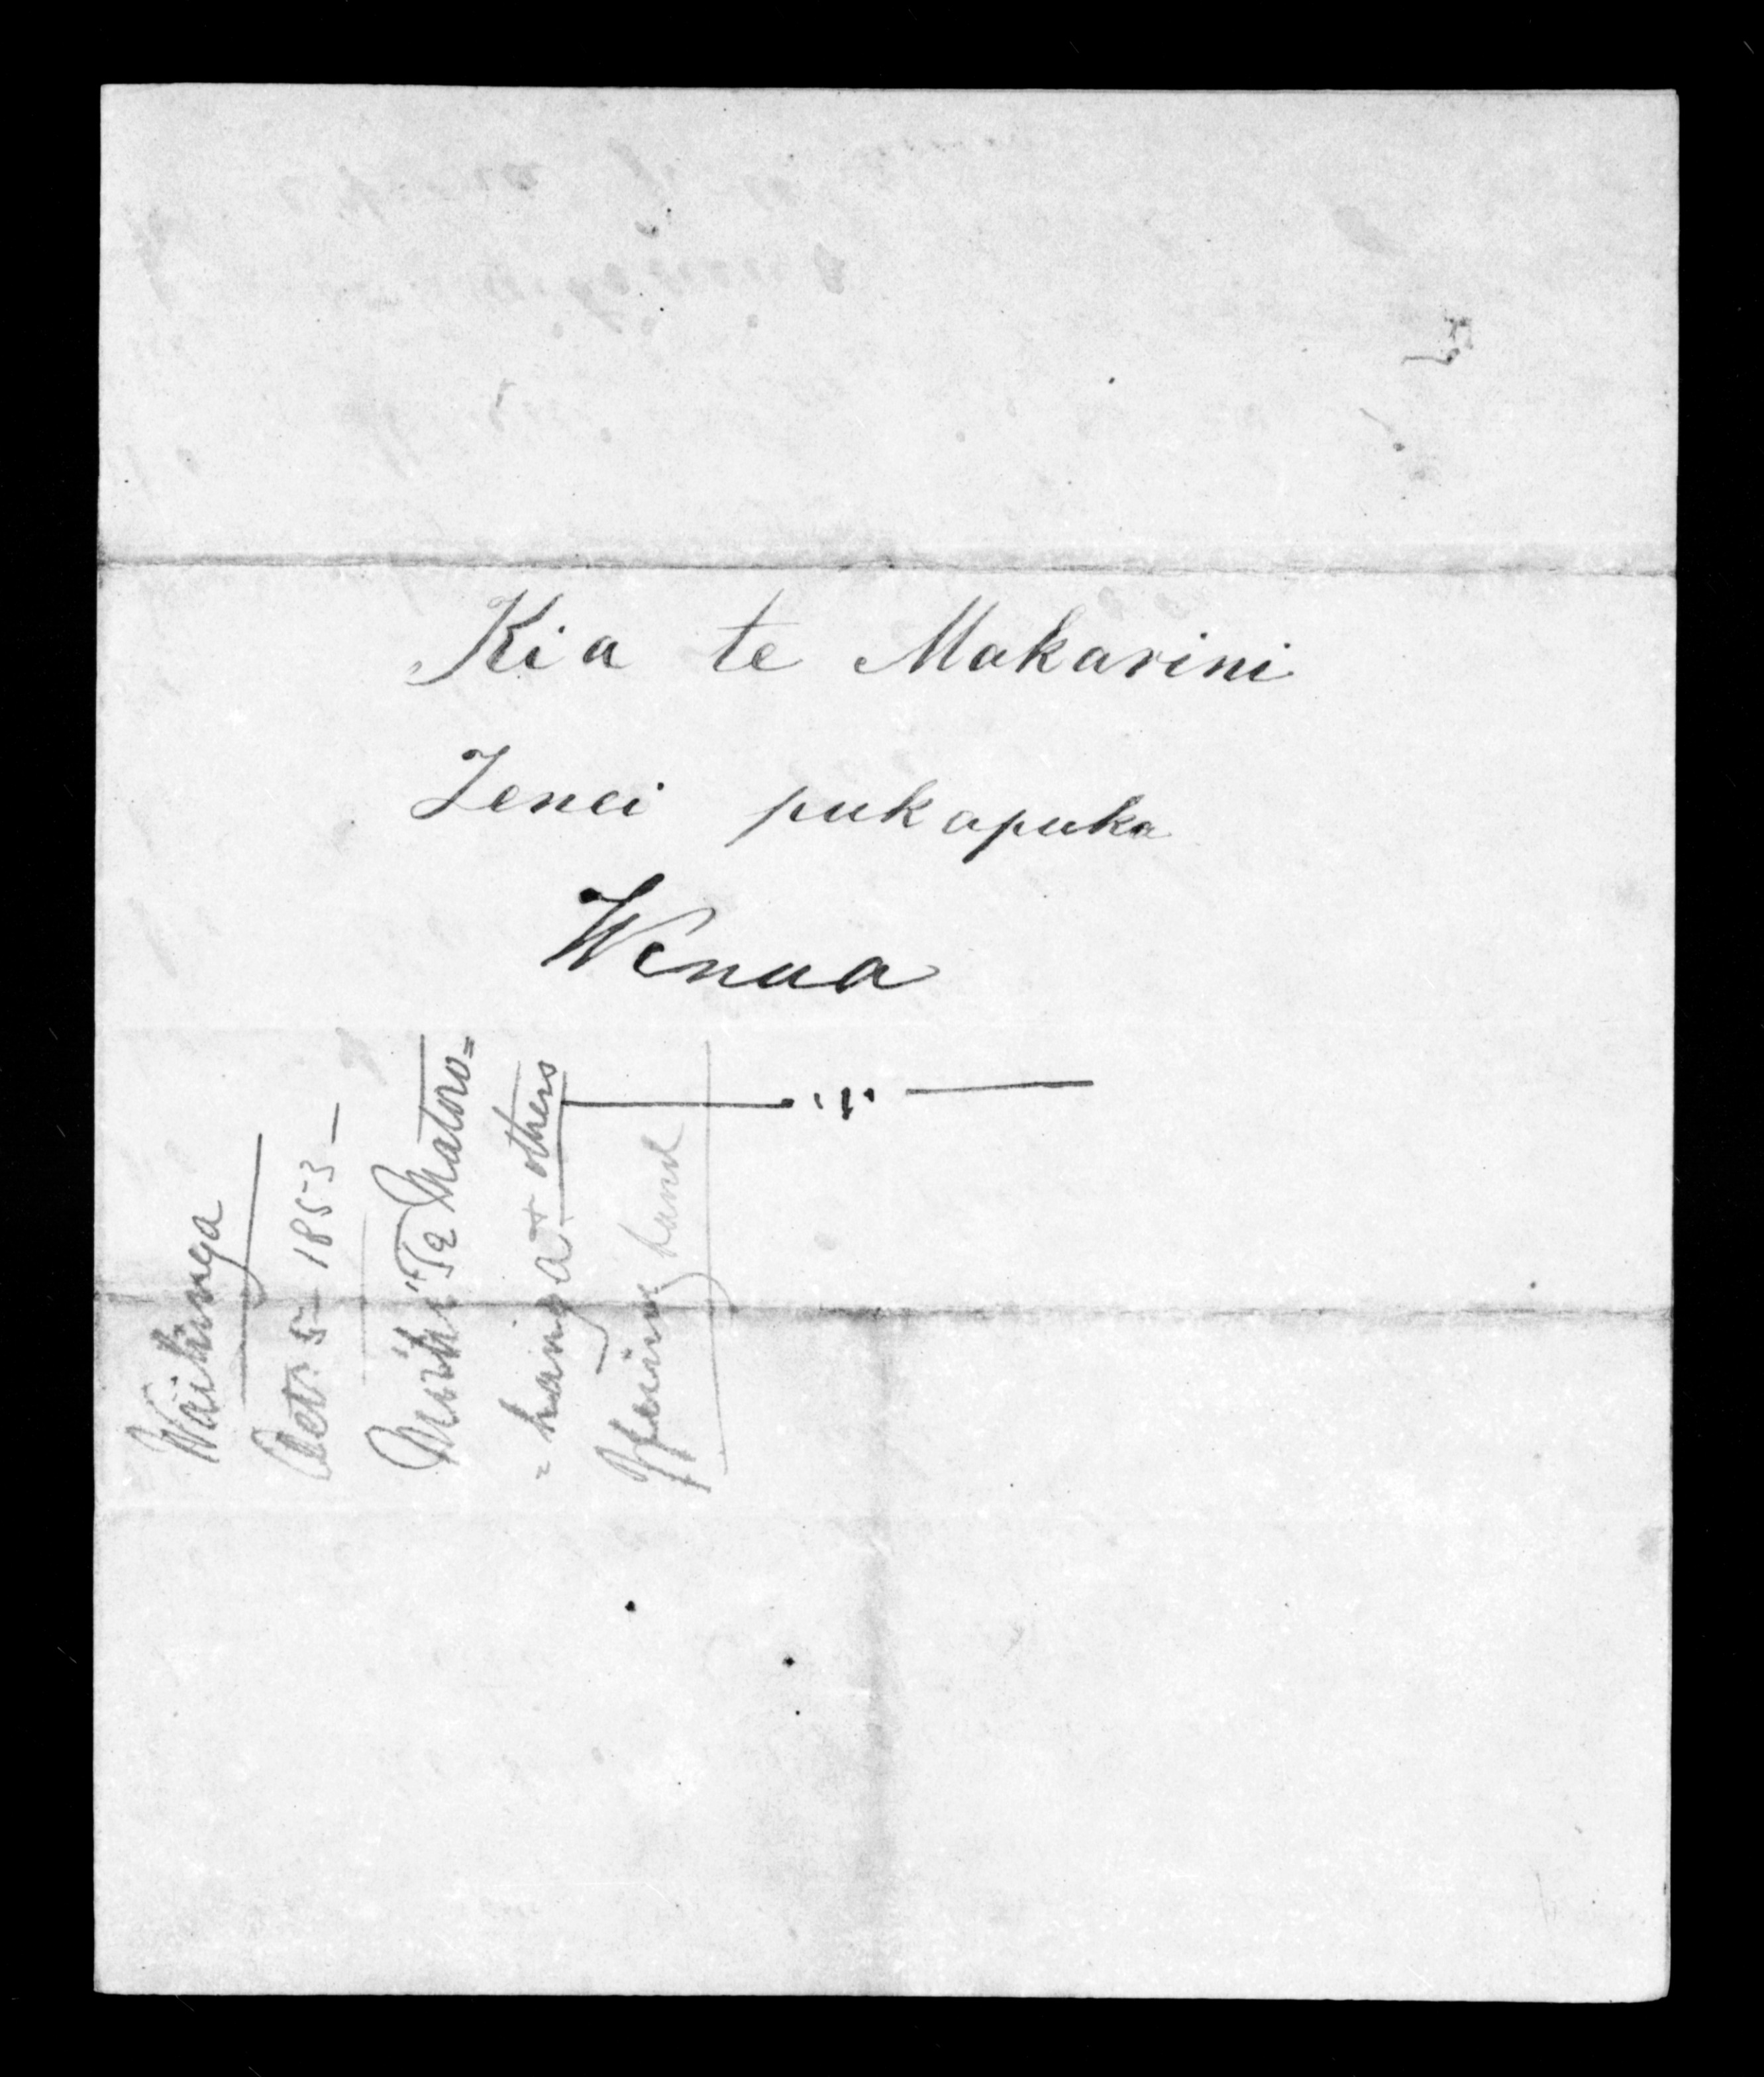 Kia te Makarini
Tenei pukapuka
Wenua
Waihinga
Octr. 5 - 1853 -
Te Matoro=
=hanga + others
Offering land